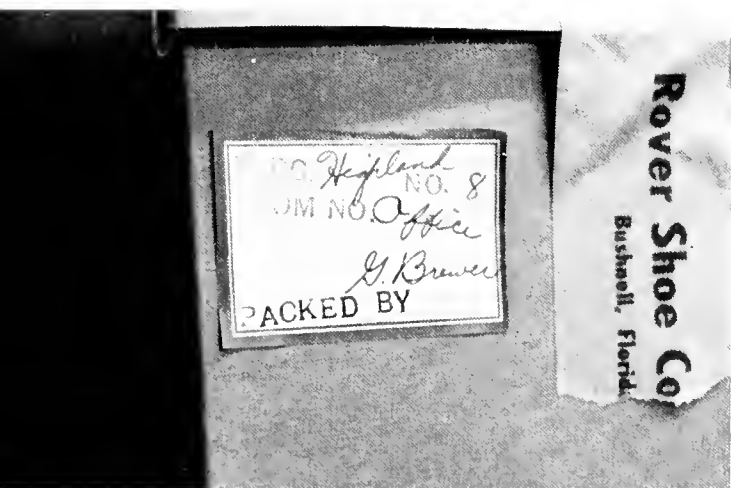 CO. Highland
NO. 8
OM NO. Office
G. Brewer
PACKED BY
Rover Shoe Co
Bushnell, Florid